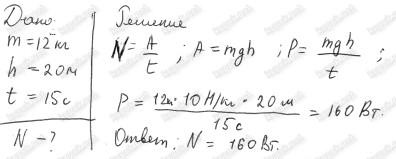 Дано
m=12кг
h = 20м
t = 15с
N -?
Решение
N= A/t ; A=mgh ; P= mgh/t ;
P = 12кг · 10 Н/кг · 20 м / 15с = 160 Вт.
Ответ: N = 160 Вт.